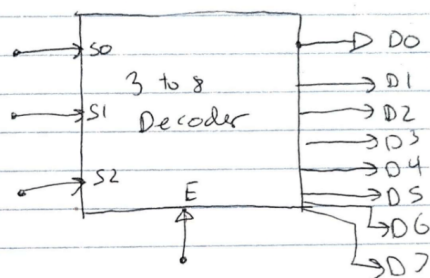 S0
S1
S2
3 to 8
Decoder
E
D0
D1
D2
D3
D4
D5
D6
D7